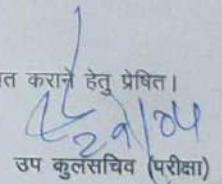 त कराने हेतु प्रेषित।
29/04
उप कुलसचिव (परीक्षा)